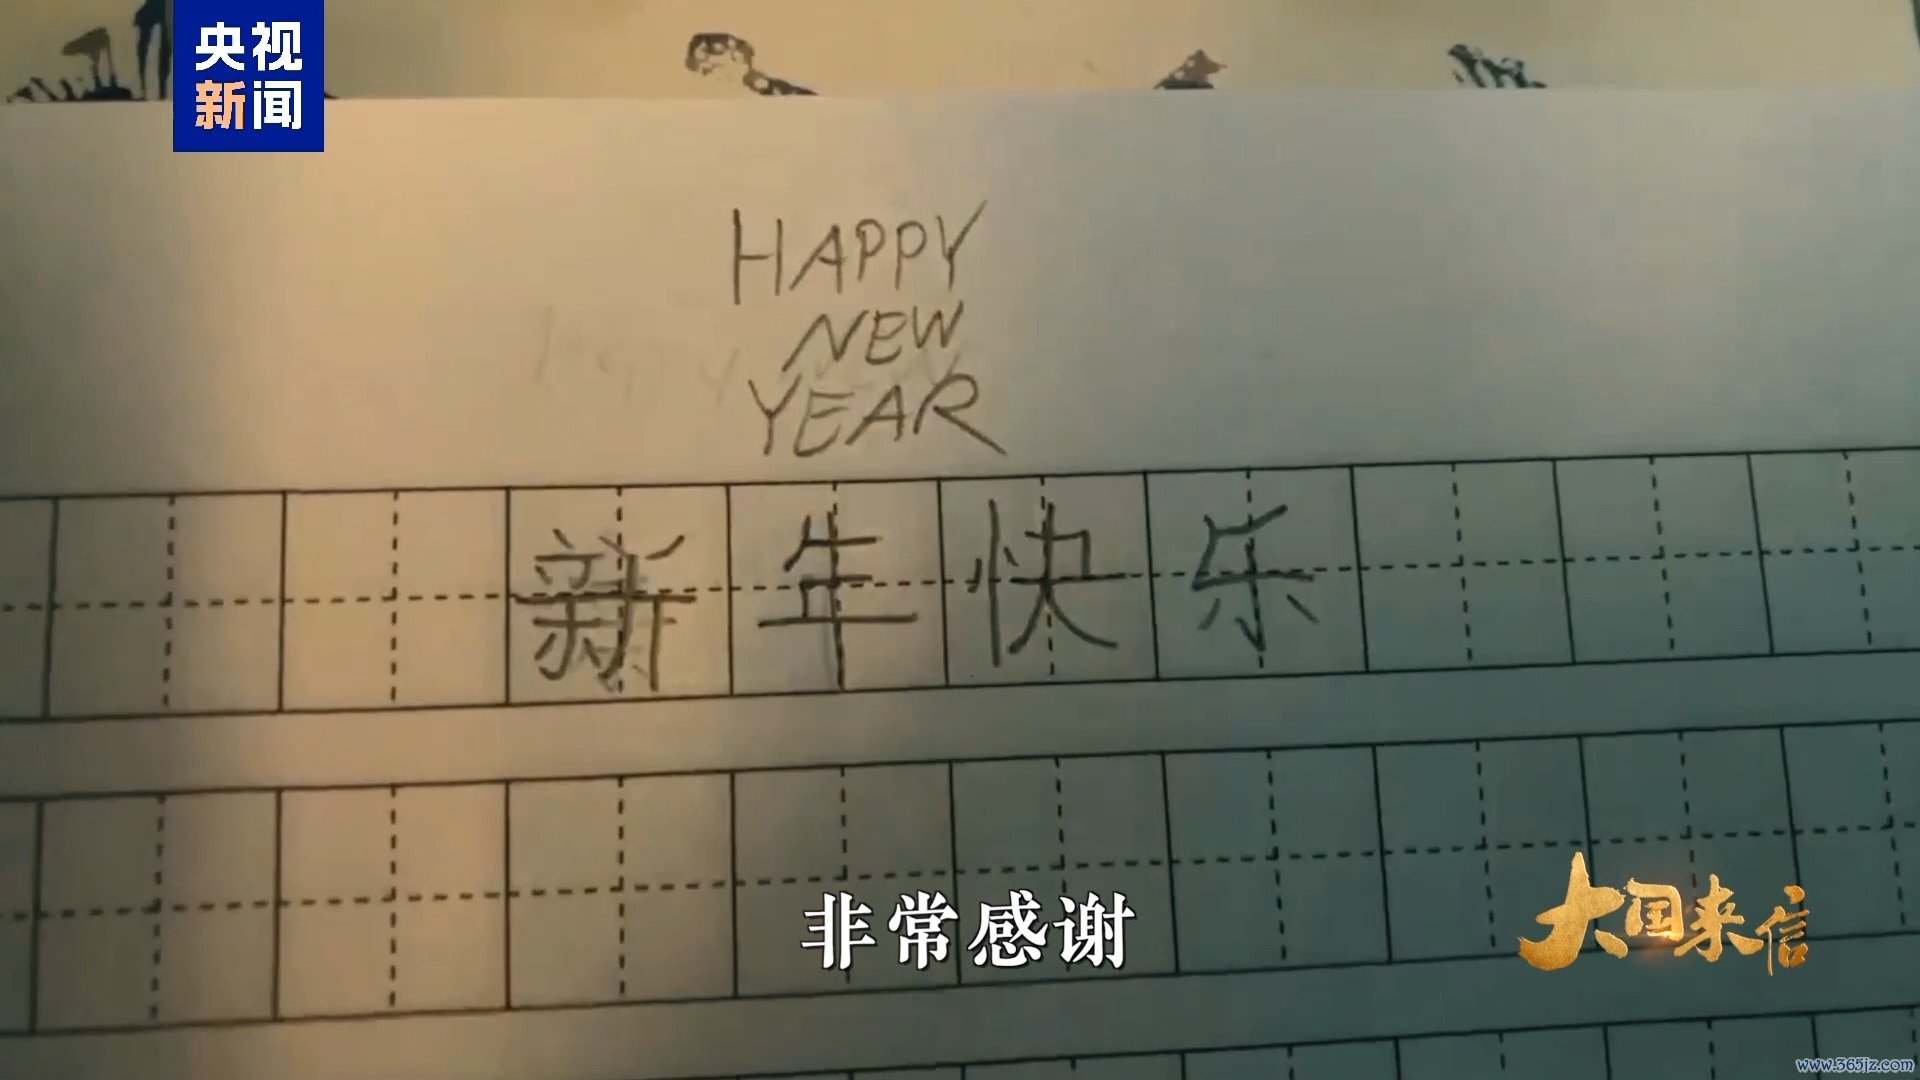 央视
新闻
HAPPY
NEW
YEAR
新年快乐
非常感谢
大国来信
www.365jz.com